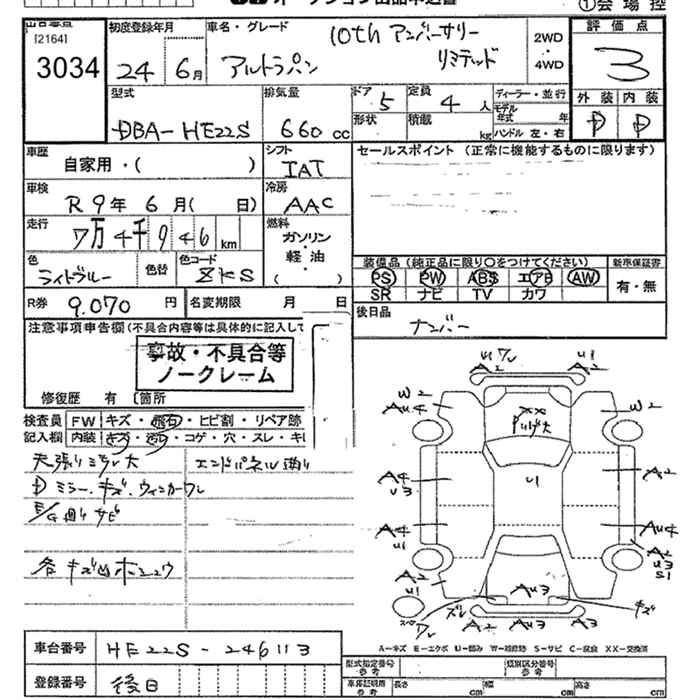 ①会場控
[2164]
3034
初度登録年月
24年6月
車名・グレード
アルトラパン
10th アンバーサリー
リミテッド
2WD
・
4WD
評価点
3
外装 内装
D D
型式
DBA-HE22S
排気量
660cc
ドア 5
形状
定員 4人
積載 kg
ディーラー・並行
モデル
年式 年
ハンドル 左・右
車歴
自家用・( )
シフト
IAT
セールスポイント (正常に機能するものに限ります)
車検
R9年6月( 日)
冷房
AAC
走行
7万4千946km
燃料
ガソリン・
軽油・
( )
色
ライトブルー
色替
色コード
ZKS
装備品 (純正品に限り○をつけてください)
PS PW ABS エアB AW
SR ナビ TV カワ
新車保証書
有・無
R券 9.070円
名変期限 月 日
後日品
ナンバー
注意事項申告欄(不具合内容等は具体的に記入して
事故・不具合等
ノークレーム
修復歴 有 〔箇所
検査員
記入欄
FW キズ・飛石・ヒビ割・リペア跡
内装 キズ・汚れ・コゲ・穴・スレ・キレ
エンドパネル凹り
Dミラー・キズ・ウィンカーワレ
サビ
各キズ凹
U1 ワレ
A2
U1
A2
W2
AU4
W2
A4
U3
U1
A2
A4
U1
AU4
A2
U3
S1
A2
AU3
AU3
ズレ
ワレ
キズ
A2
A2
スペア
A-キズ E-エクボ U-凹み W-補修跡 S-サビ C-腐食 XX-交換済
車台番号 HE22S-246113
登録番号 後日
型式指定番号
参考
類別区分番号
参考
車庫証明用
参考
長さ cm 幅 cm 高さ cm